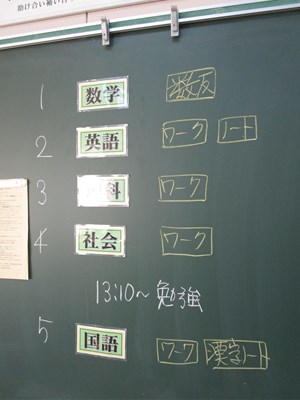 助け合い補い合
1 数学 数友
2 英語 ワーク ノート
3 科 ワーク
4 社会 ワーク
13:10~ 勉強
5 国語 ワーク 漢字ノート